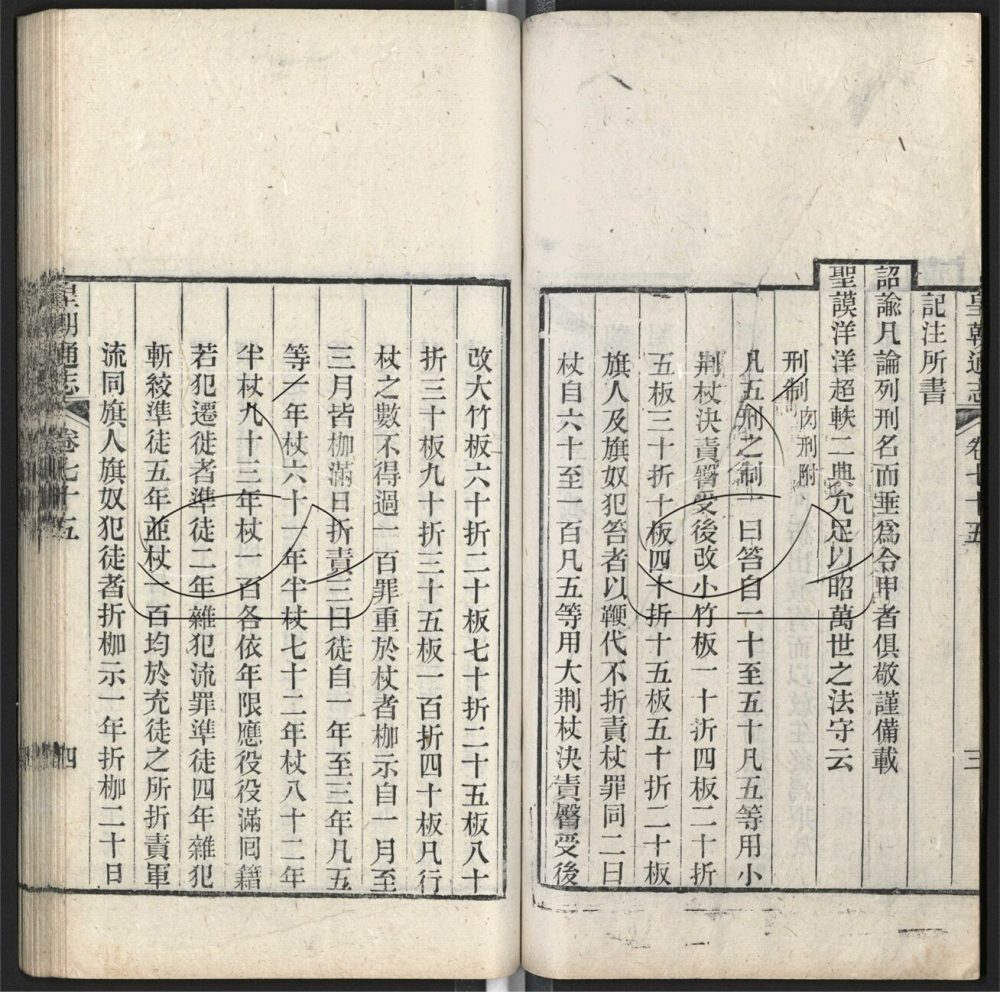 皇朝通志 卷七十五 三
記注所書
詔諭凡論列刑名而垂爲令甲者俱敬謹備載
聖謨洋洋超軼二典允足以昭萬世之法守云
刑制 肉刑附
凡五刑之制一曰笞自一十至五十凡五等用小
荆杖決責臀受後改小竹板一十折四板二十折
五板三十折十板四十折十五板五十折二十板
旗人及旗奴犯笞者以鞭代不折責杖罪同二曰
杖自六十至一百凡五等用大荆杖決責臀受後
改大竹板六十折二十板七十折二十五板八十
折三十板九十折三十五板一百折四十板凡行
杖之數不得過一百罪重於杖者枷示自一月至
三月皆枷滿日折責三曰徒自一年至三年凡五
等一年杖六十一年半杖七十二年杖八十二年
半杖九十三年杖一百各依年限應役役滿囘籍
若犯遷徙者準徒二年雜犯流罪準徒四年雜犯
斬絞準徒五年並杖一百均於充徒之所折責軍
流同旗人旗奴犯徒者折枷示一年折枷二十日
皇朝通志 卷七十五 四